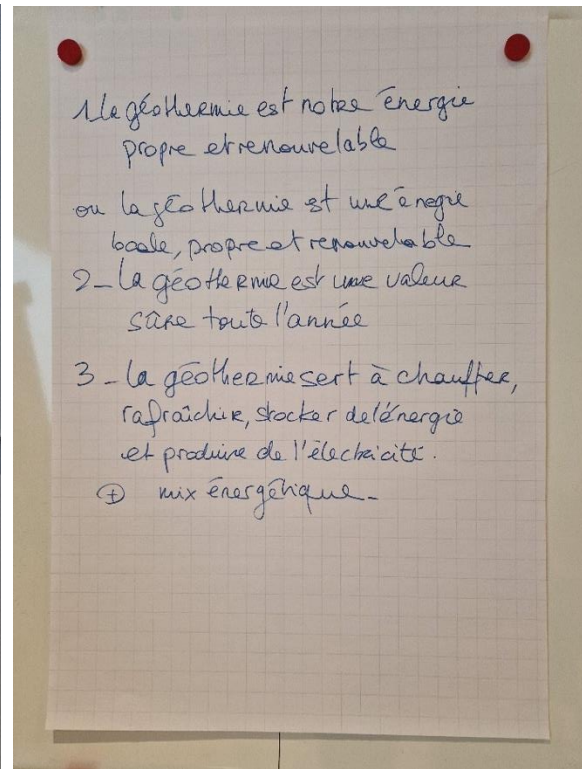 1 la géothermie est notre énergie
propre et renouvelable
ou la géothermie est une énegie
locale, propre et renouvelable
2_ La géothermie est une valeur
sûre toute l'année
3 - la géothermie sert à chauffer,
rafraîchir, stocker de l'énergie
et produire de l'électricité.
⊕ mix énergétique_